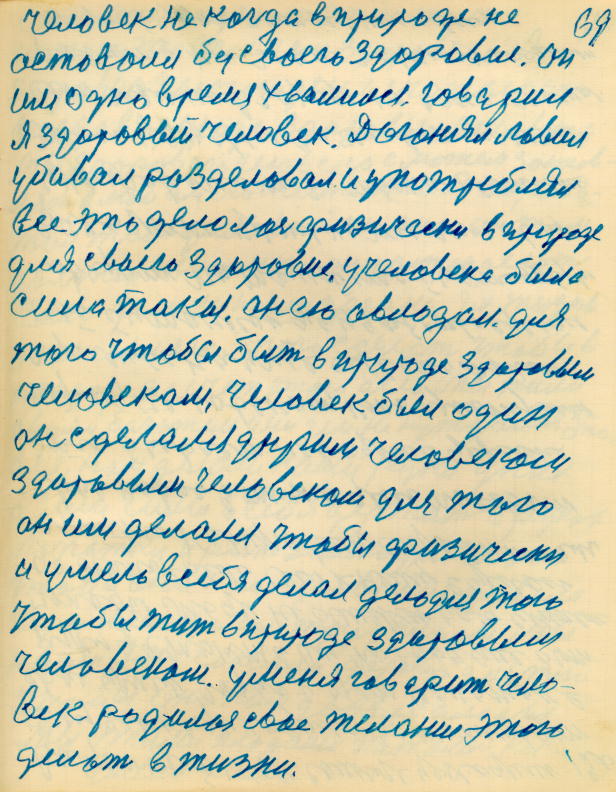 человек не когда в природе не 69
оставался без своего здоровие. он
им одно время хвалился. говорил
я здоровый человек. Догонял ловил
убивал разделовал. и употреблял
все это делолось физически в природе
для своего здоровие. у человека была
сила такая. он ею овлодал. для
того чтобы быт в природе здоровым
человеком, человек был один
он сделался другим человеком
здоровым человеком для того
он им делался чтобы физически
и умело в себя делал дело для того
чтобы жит в природе здоровым
человеком. у меня говорит чело-
век родилося свое желание этого
делат в жизни.